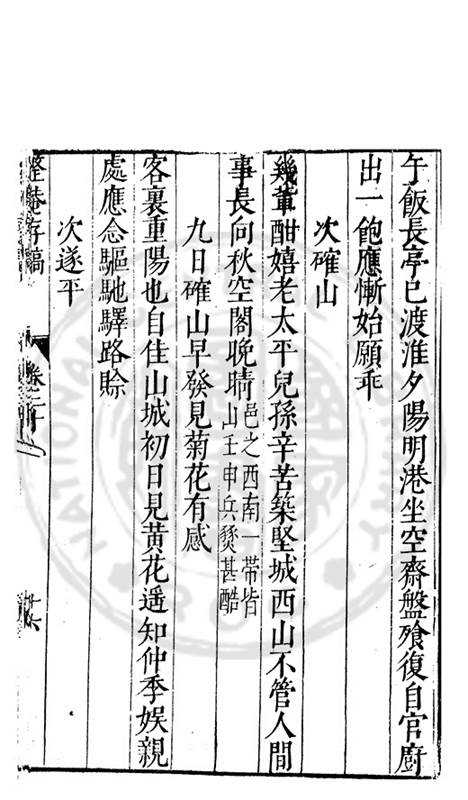 午飯長亭已渡淮夕陽明港坐空齋盤飱復自官廚
出一飽應慚始願乖
次確山
幾軰酣嬉老太平兒孫辛苦築堅城西山不管人間
事長向秋空閣晚晴
邑之西南一帶皆
山壬申兵燹甚酷
九日確山早發見菊花有感
客裏重陽也自佳山城初日見黃花遥知仲季娛親
處應念驅馳驛路賒
次遂平
整菴存稿